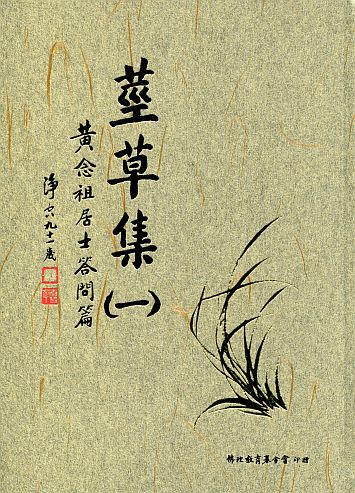 莖草集(一)
黃念祖居士答問篇
淨空九十一歲
佛陀教育基金會 印贈